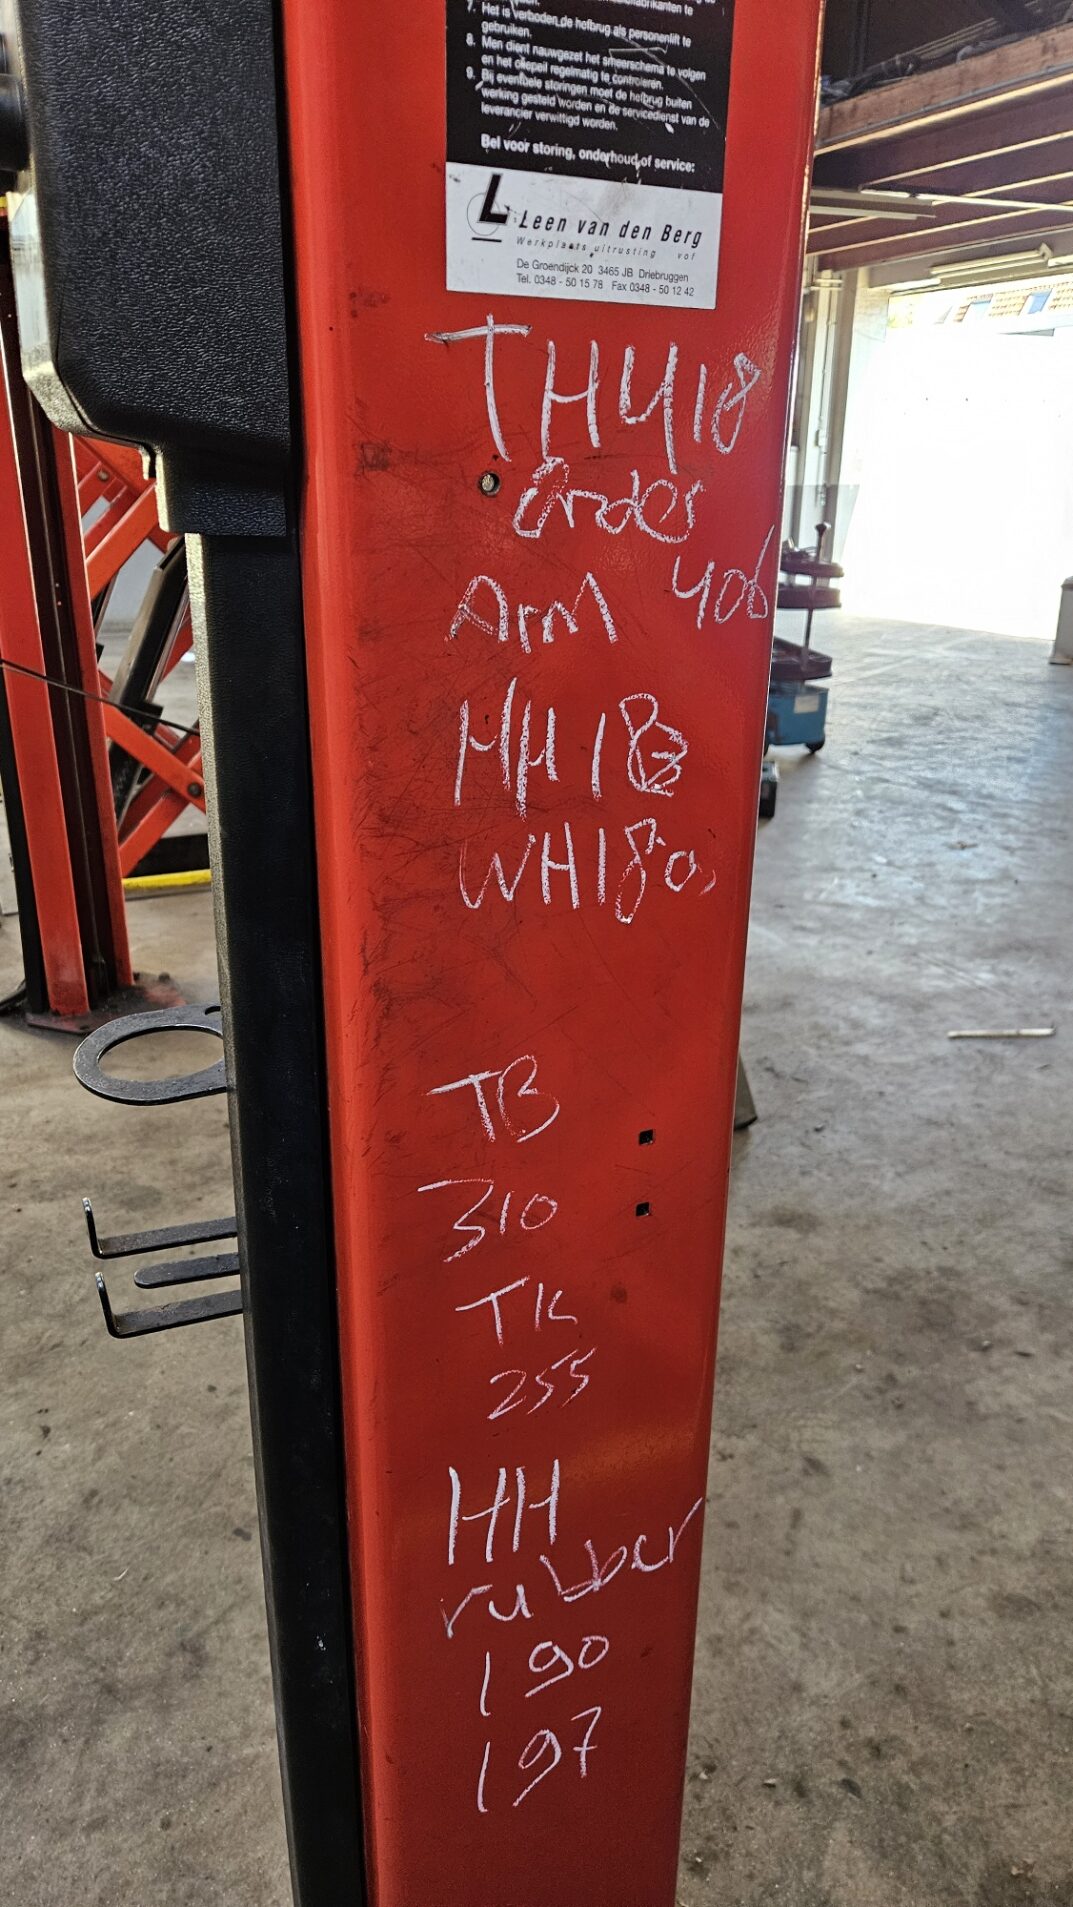 7. Het is verboden de hefbrug als personenlift te
gebruiken.
8. Men dient nauwgezet het smeerschema te volgen
en het oliepeil regelmatig te controleren.
9. Bij eventuele storingen moet de hefbrug buiten
werking gesteld worden en de servicedienst van de
leverancier verwittigd worden.
Bel voor storing, onderhoud of service:
L Leen van den Berg
Werkplaats uitrusting vof
De Groendijck 20 3465 JB Driebruggen
Tel. 0348 - 50 15 78 Fax 0348 - 50 12 42
TH418
Order
Arm 406
HH18
WH180
TB
310
TK
255
HH
rubber
190
197